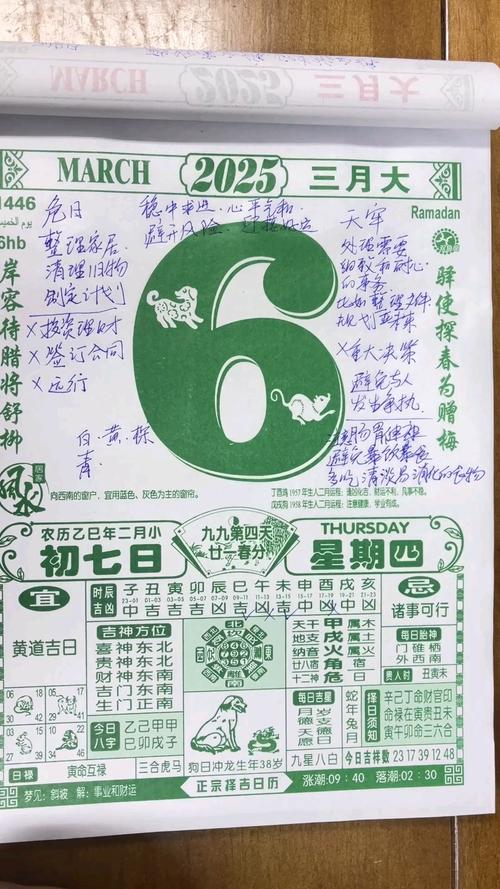 MARCH 2025 三月大
MARCH 2025 三月大
1446
6hb
Ramadan
危日
整理家居
清理旧物
制定计划
×投资理财
×签订合同
×远行
稳中求进.心平气和.
避开风险.
天牢
处理需要
细致和耐心
的事务
比如整理文件
规划未来
×重大决策
避免与人
发生争执.
肠胃健康
避免暴饮暴食
多吃清淡易消化的食物
白.黄.棕
青
岸容待腊将舒柳
驿使探春为赠梅
6
居家
风水
向西南的窗户，宜用蓝色、灰色为主的窗帘。
丁酉鸡1957年生人二月运程：
戊戌狗1958年生人二月运程：注意健康，
农历乙巳年二月小
初七日
九九第四天
廿一春分
THURSDAY
星期四
宜
黄道吉日
时辰吉凶
子丑寅卯辰巳午未申酉戌亥
23-01 01-03 03-05 05-07 07-09 09-11 11-13 13-15 15-17 17-19 19-21 21-23
忌
诸事可行
吉神方位
喜神东北
贵神东北
财神东南
吉门正东
生门正南
北
天干 甲 属木
地支 戌 属土
纳音 火 属火
廿八宿 角宿
十二神 危日
每日胎神
门碓栖
外西南
贵人时 丑寅未
06 18
05
03
10
22
今日八字
乙己甲甲
巳卯戌子
每日吉星
月德
天愿
蛇年兔月
择日须知
辛己丁命财官印
命禄在寅贵丑未
寅午卯命三六合
日禄 寅命互禄
三合虎马
狗日冲龙生年38岁
九星八白
今日吉祥数 23 17 39 12 48
梦见：斜坡 解：事业和财运
正宗择吉日历
涨潮:09:40 落潮:02:30